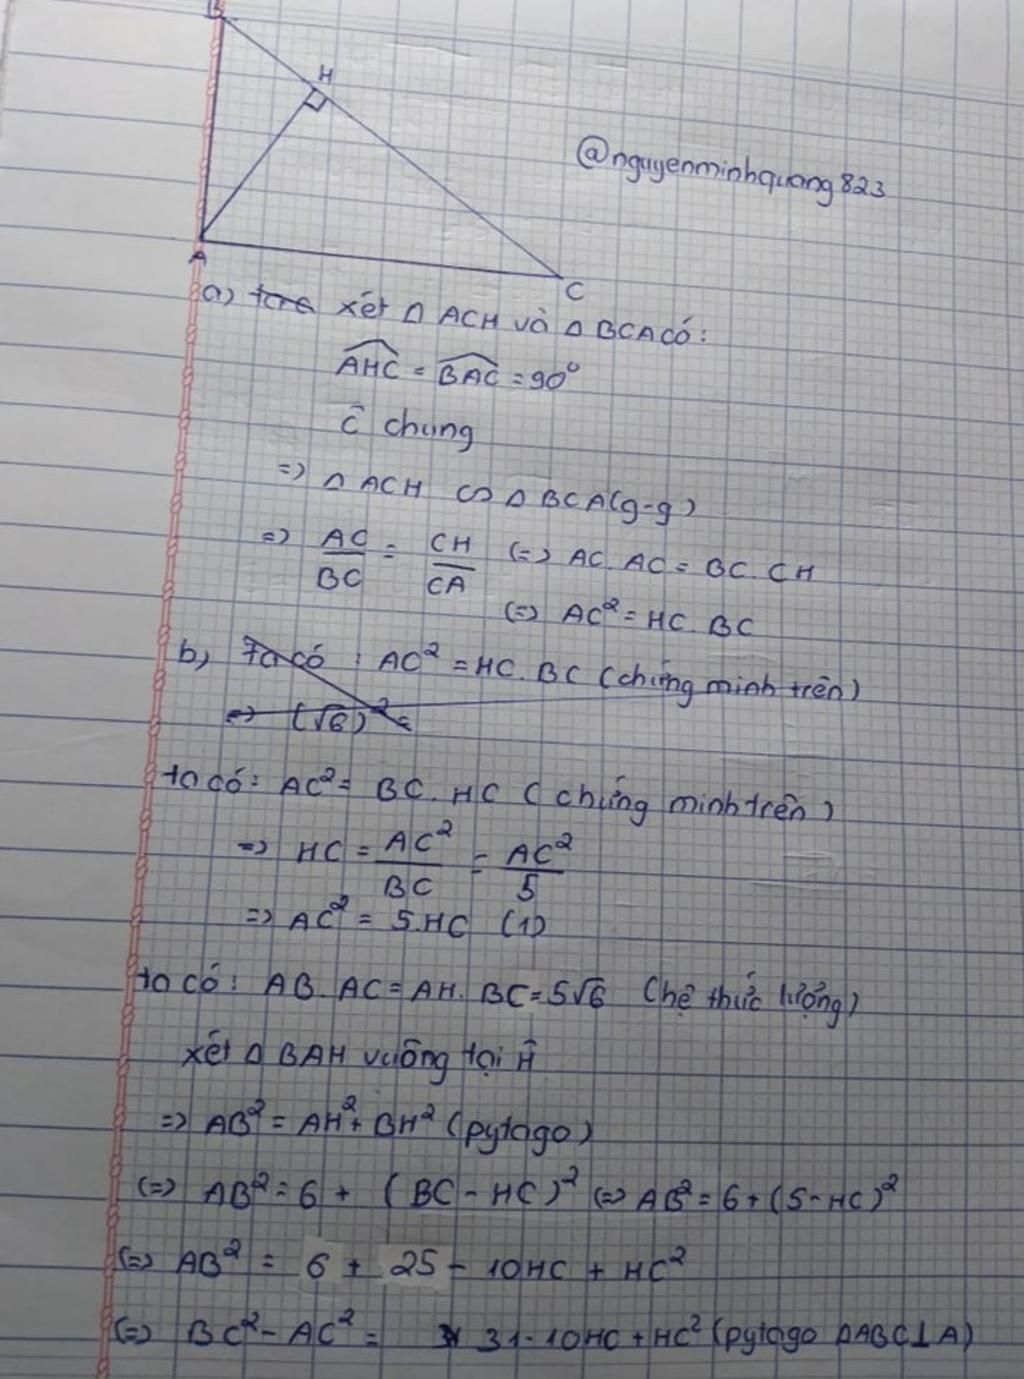 B
H
@nguyenminhquang823
A
C
a) xét Δ ACH và Δ BCA có:
AHC = BAC = 90°
Ĉ chung
=> Δ ACH ∽ Δ BCA (g-g)
=> AC/BC = CH/CA (=) AC. AC = BC. CH
(=) AC² = HC. BC
b) Ta có : AC² = HC. BC (chứng minh trên)
=> (√6)² =
ta có: AC² = BC. HC (chứng minh trên)
=> HC = AC²/BC = AC²/5
=> AC² = 5.HC (1)
ta có: AB. AC = AH. BC = 5√6 (hệ thức lượng)
xét Δ BAH vuông tại Ĥ
=> AB² = AH² + BH² (pytago)
(=) AB² = 6 + (BC - HC)² (=) AB² = 6 + (5 - HC)²
(=) AB² = 6 + 25 - 10HC + HC²
(=) BC² - AC² = 31 - 10HC + HC² (pytago ΔABC⊥A)